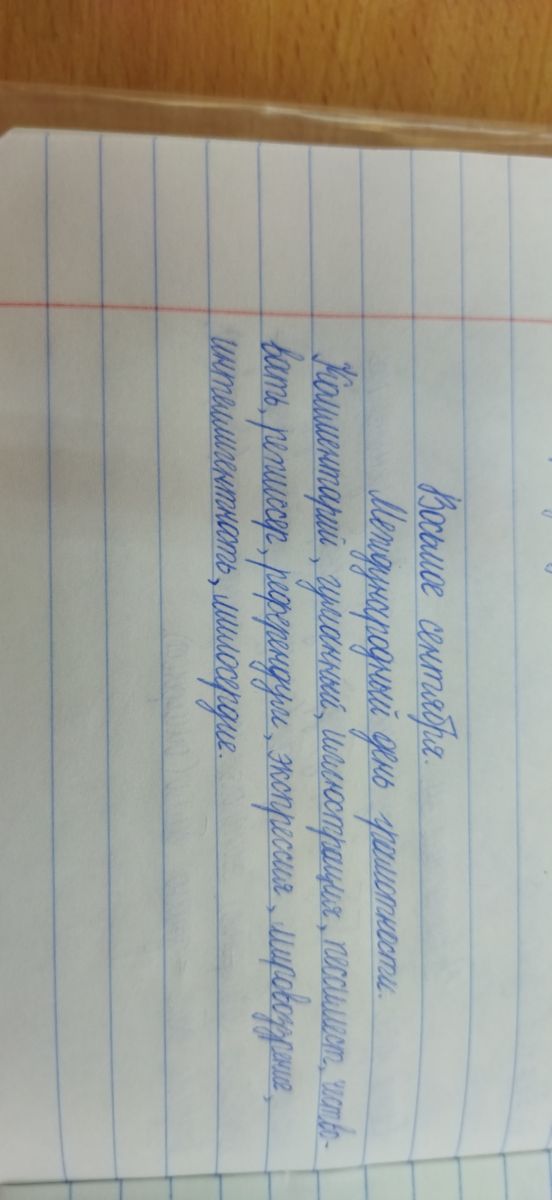 Восьмое сентября.
Международный день грамотности.
Комментарий, гуманный, иллюстрация, пессимист, чество-
вать, режиссер, референдум, экспрессия, мировоззрение,
интеллигентность, милосердие.